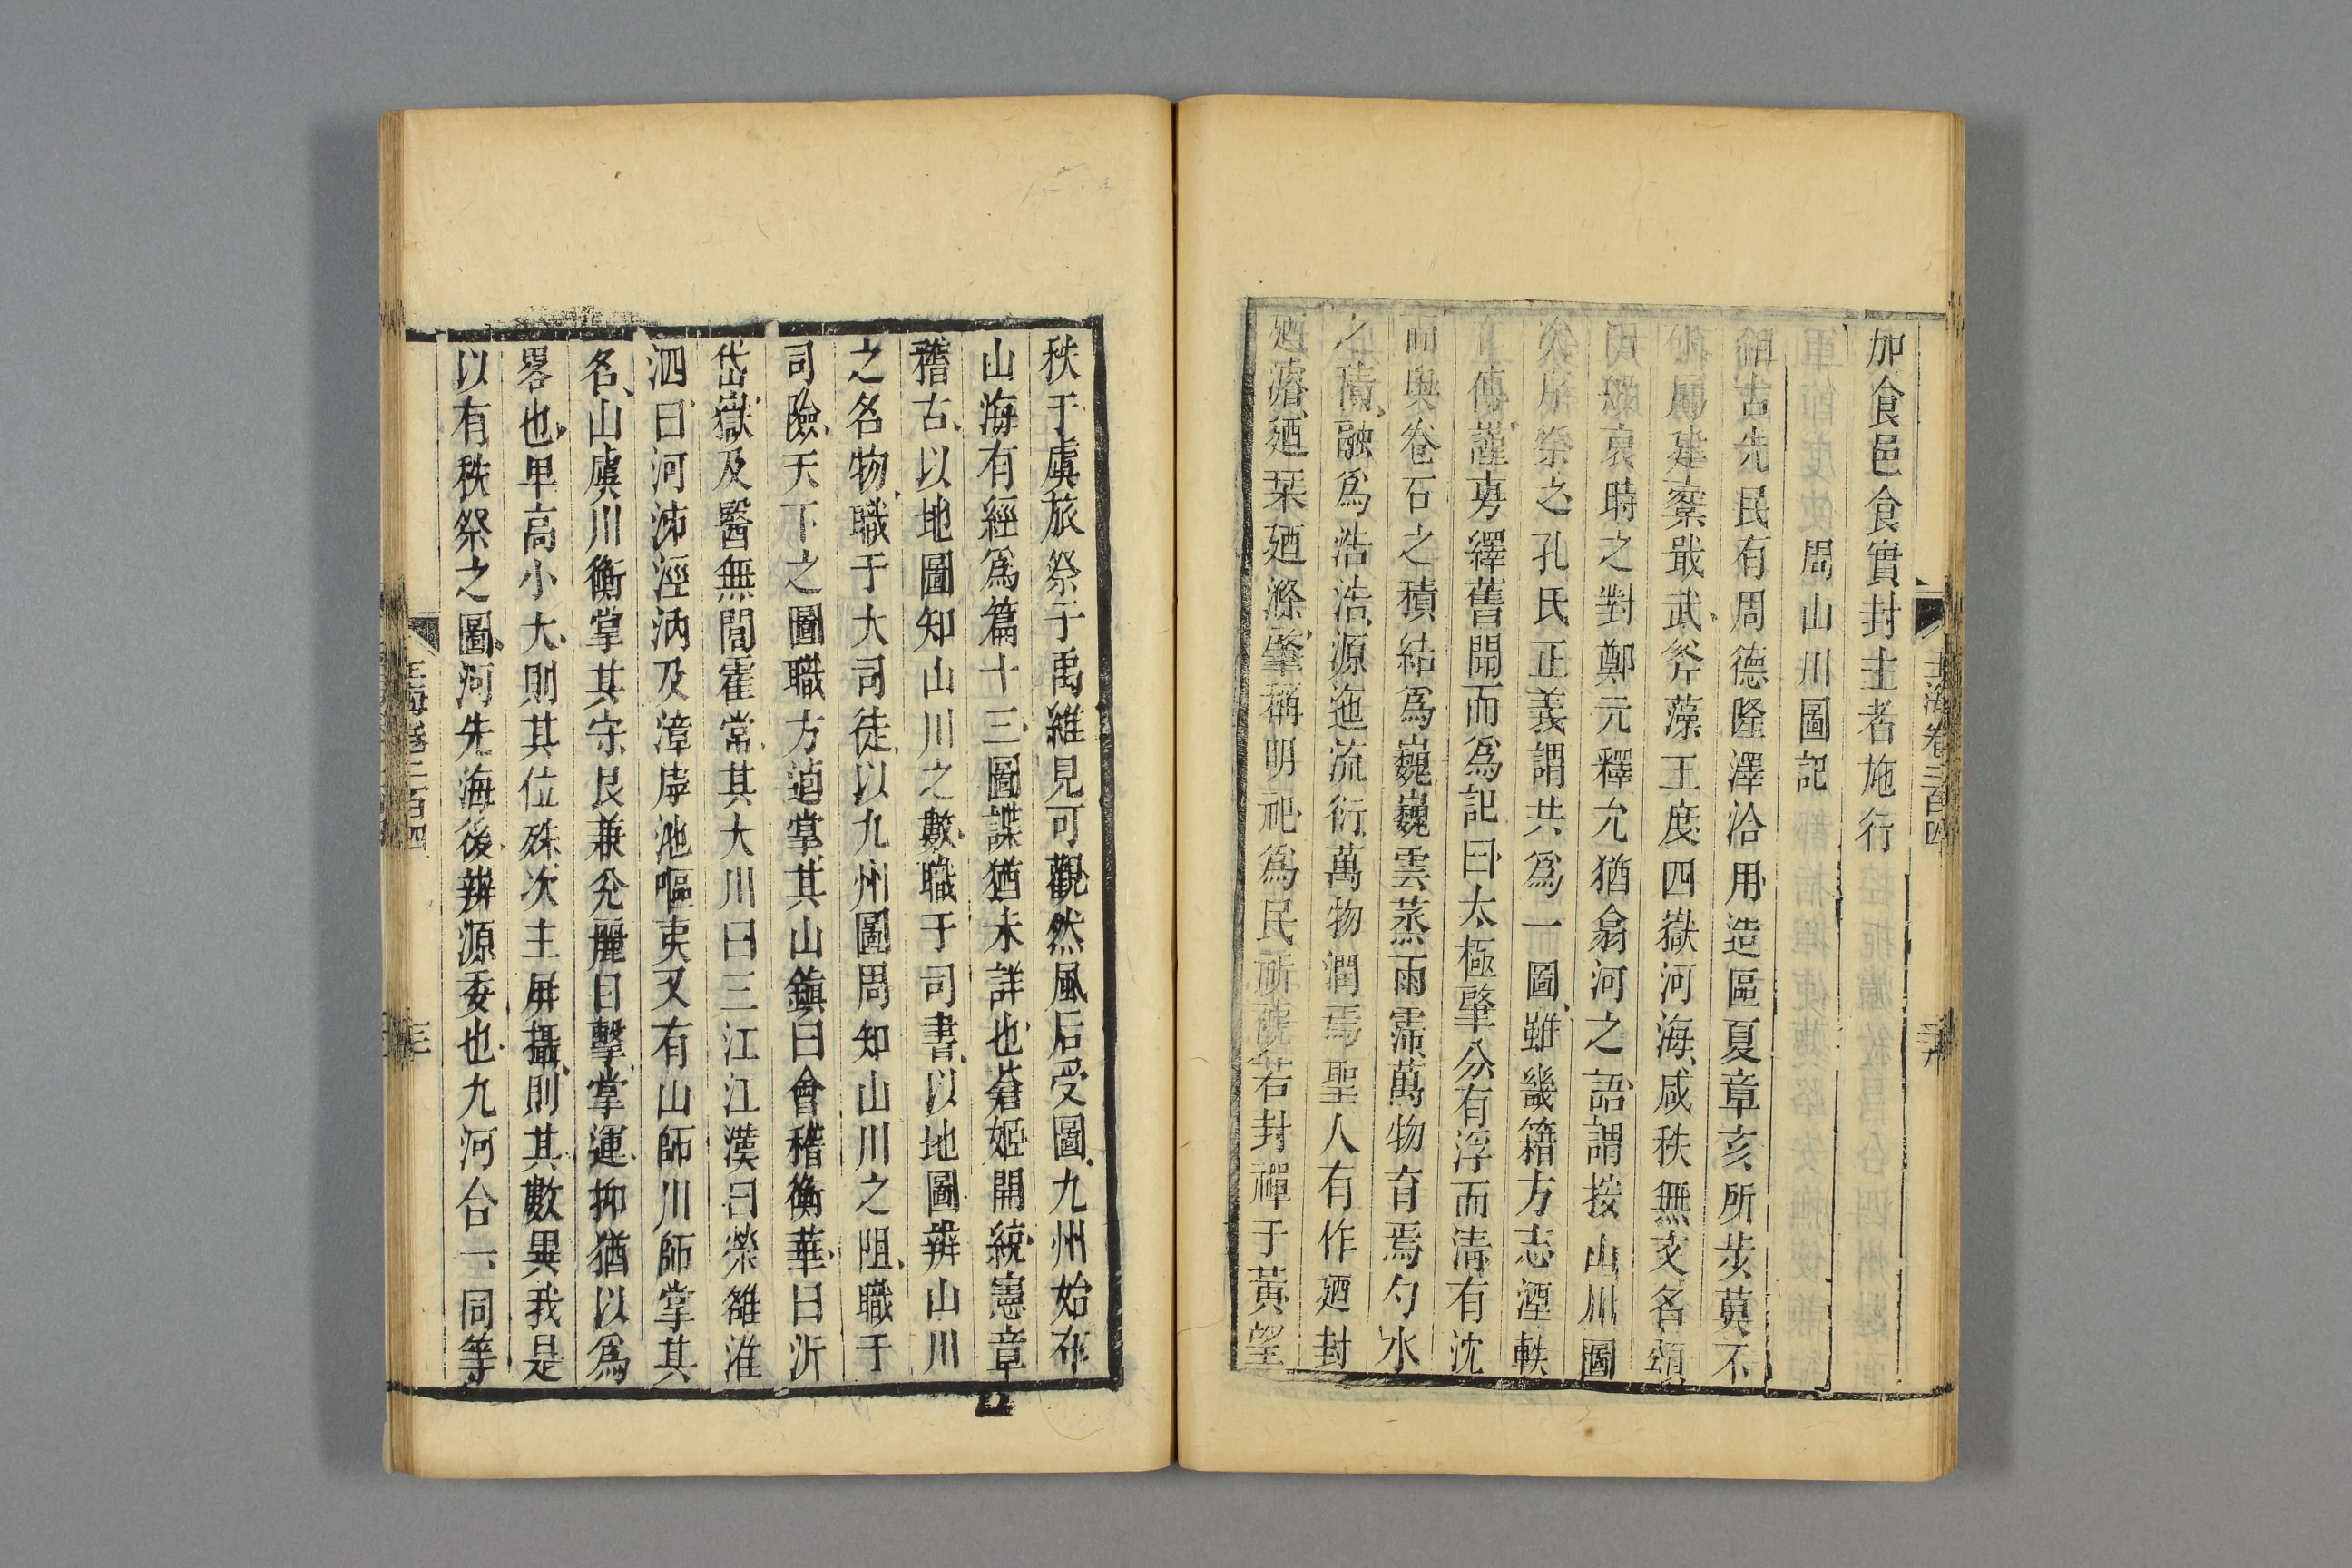 加食邑食實封主者施行
周山川圖記
古先民有周德隆澤洽用造區夏章亥所步莫不
建櫜戢武斧藻王度四嶽河海咸秩無文名頌
哀時之對鄭元釋允猶翕河之語謂按山川圖
次序祭之孔氏正義謂共爲一圖雖畿籍方志湮軼
傳謹剪繹舊聞而爲記曰太極肇分有浮而淸有沈
而與卷石之積結爲巍巍雲蒸雨霈萬物育焉勺水
之積融爲浩浩源迤流衍萬物潤焉聖人有作廼封
廼濬廼栞廼滌肇稱明祀爲民祈禠若封禪于黃望
秩于虞旅祭于禹雒見可觀然風后受圖九州始布
山海有經爲篇十三圖諜猶未詳也蒼姬開統憲章
稽古以地圖知山川之數職于司書以地圖辨山川
之名物職于大司徒以九州圖周知山川之阻職于
司險天下之圖職方道掌其山鎭曰會稽衡華曰沂
岱嶽及醫無閭霍常其大川曰三江江漢曰滎雒淮
泗曰河泲涇汭及漳虖池嘔夷又有山師川師掌其
名山虞川衡掌其守艮兼兊麗目擊掌運抑猶以爲
畧也卑高小大則其位殊次主屏攝則其數異我是
以有秩祭之圖河先海後辨源委也九河合一同等
玉海卷二百四
玉海卷二百四